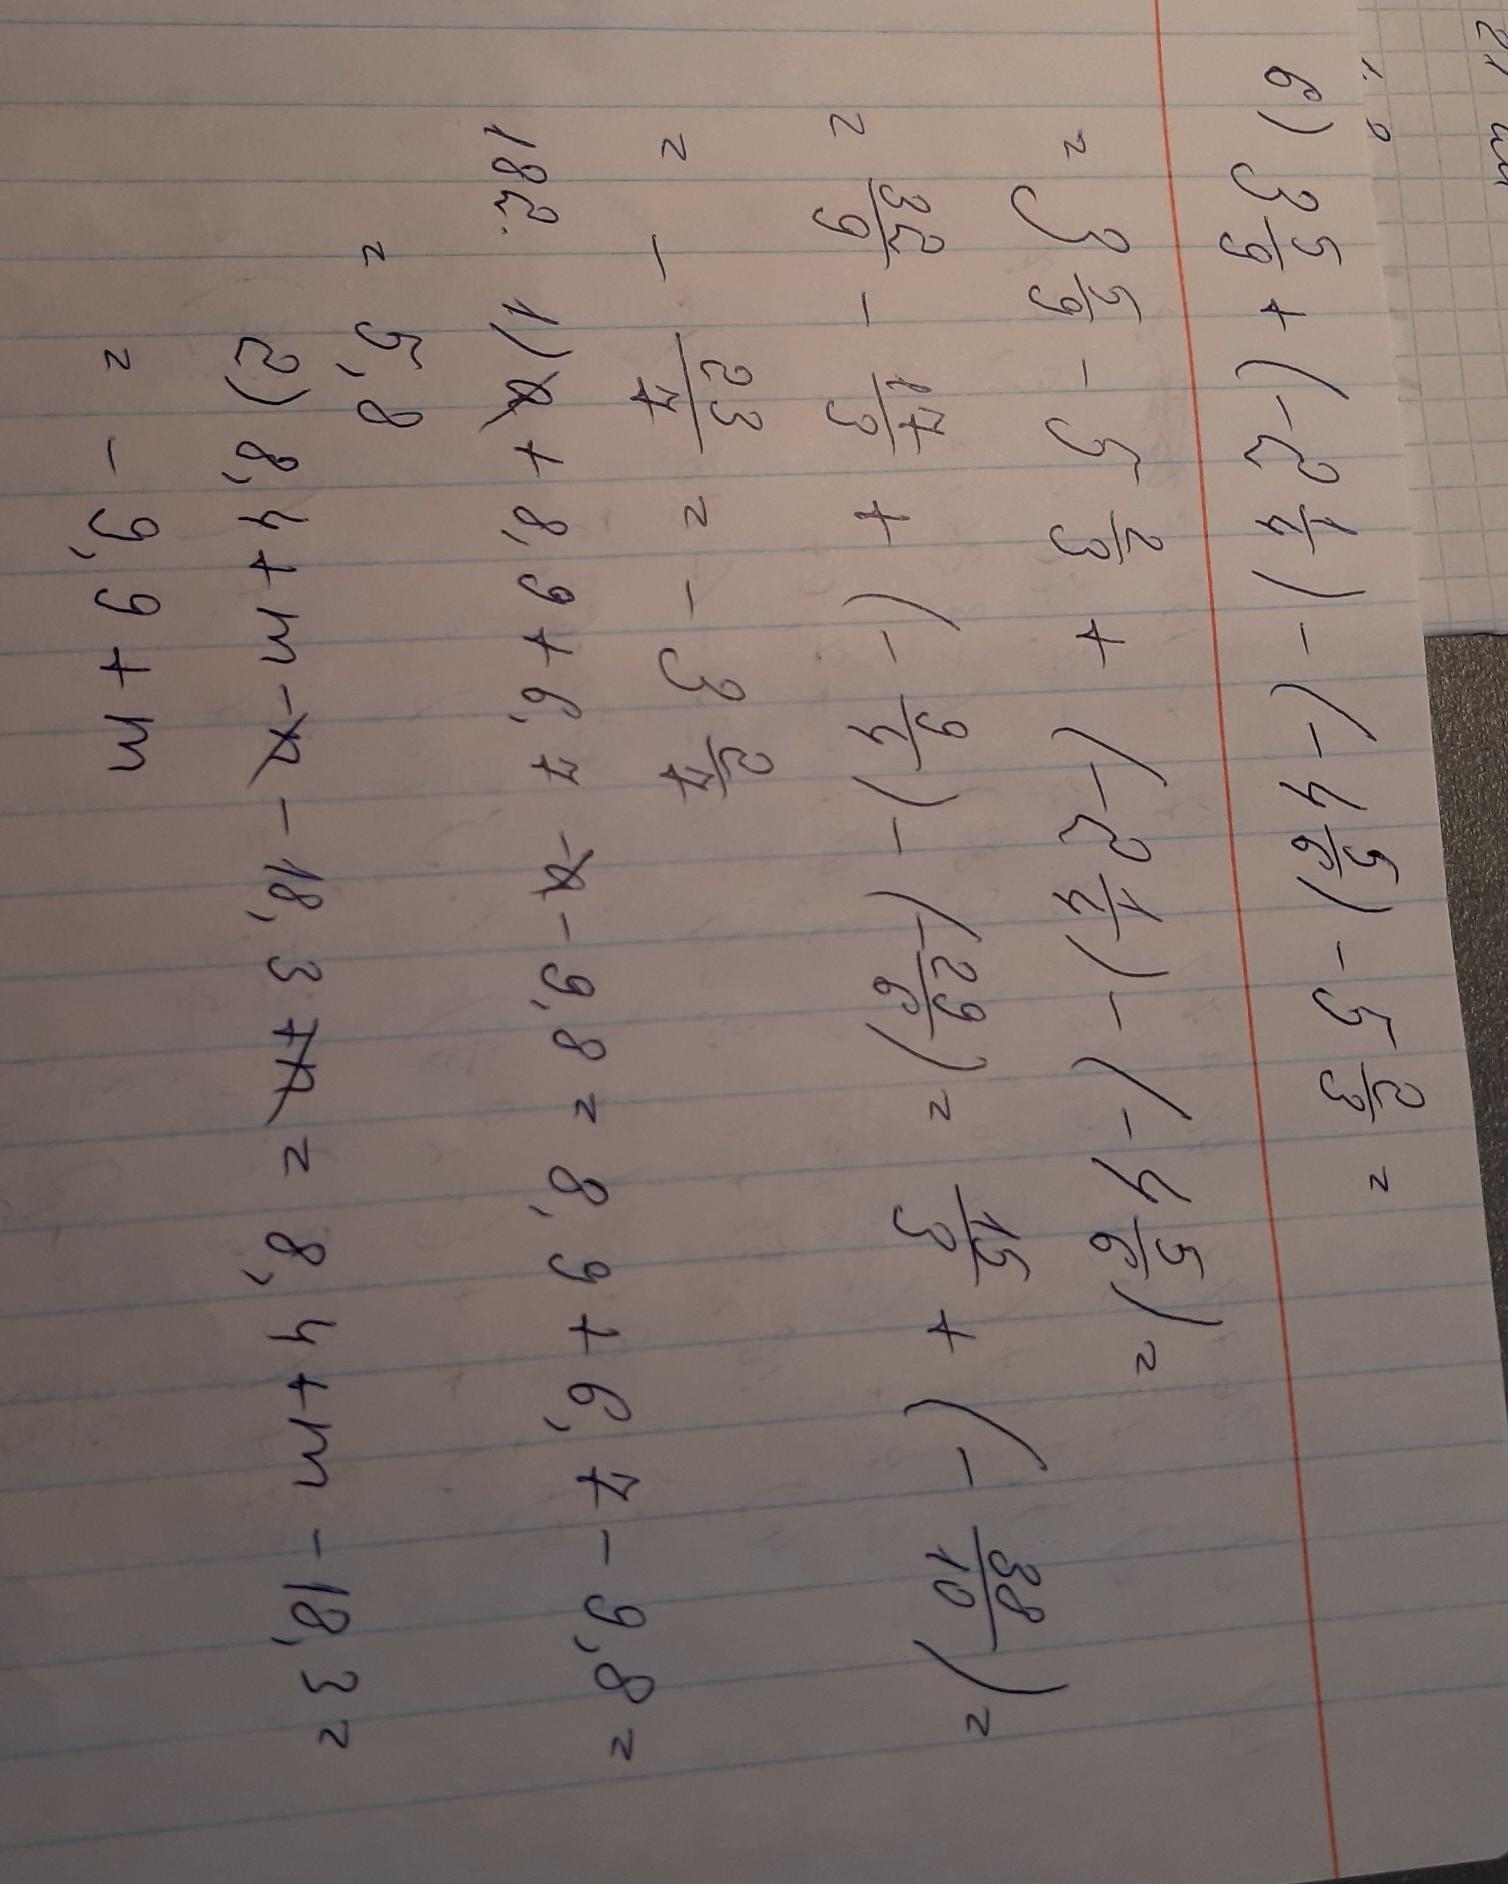 6) 3 5/9 + (-2 1/4) - (-4 5/6) - 5 2/3 =
= 3 5/9 - 5 2/3 + (-2 1/4) - (-4 5/6) =
= 32/9 - 17/3 + (-9/4) - (-29/6) = 15/3 + (-38/10) =
= - 23/7 = - 3 2/7
182. 1) x + 8,9 + 6,7 - x - 9,8 = 8,9 + 6,7 - 9,8 =
= 5,8
2) 8,4 + m - x - 18,3 + x = 8,4 + m - 18,3 =
= - 9,9 + m